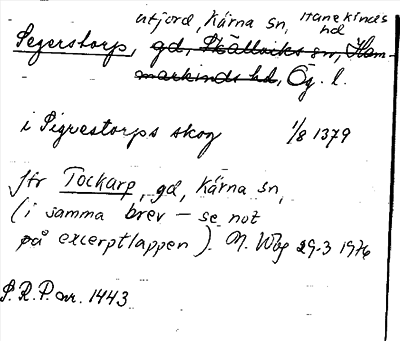 utjord, Kärna sn, Hanekinds hd
Segerstorp, gd, Skällviks sn, Ham-
markinds hd, Ög. l.
i Sigvestorps skog 1/8 1379
Jfr Tockarp, gd, Kärna sn,
(i samma brev – se not
på excerptlappen). N. Wbg 29.3 1976
S.R.P. nr. 1443